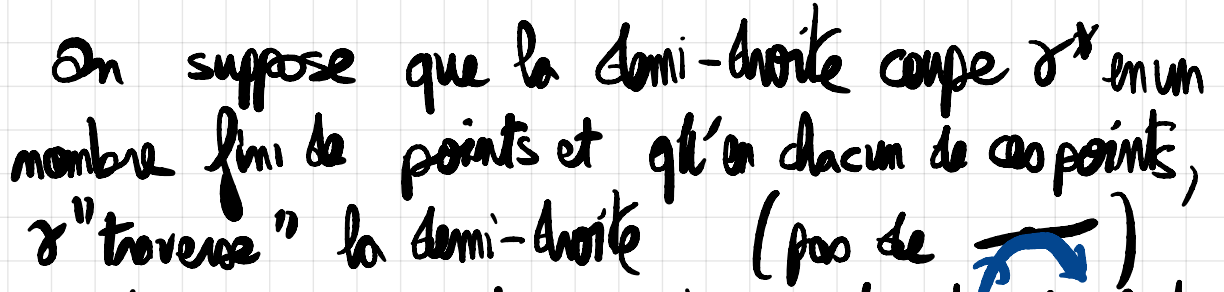 On suppose que la demi-droite coupe γ* en un
nombre fini de points et qu'en chacun de ces points,
γ "traverse" la demi-droite (pas de )